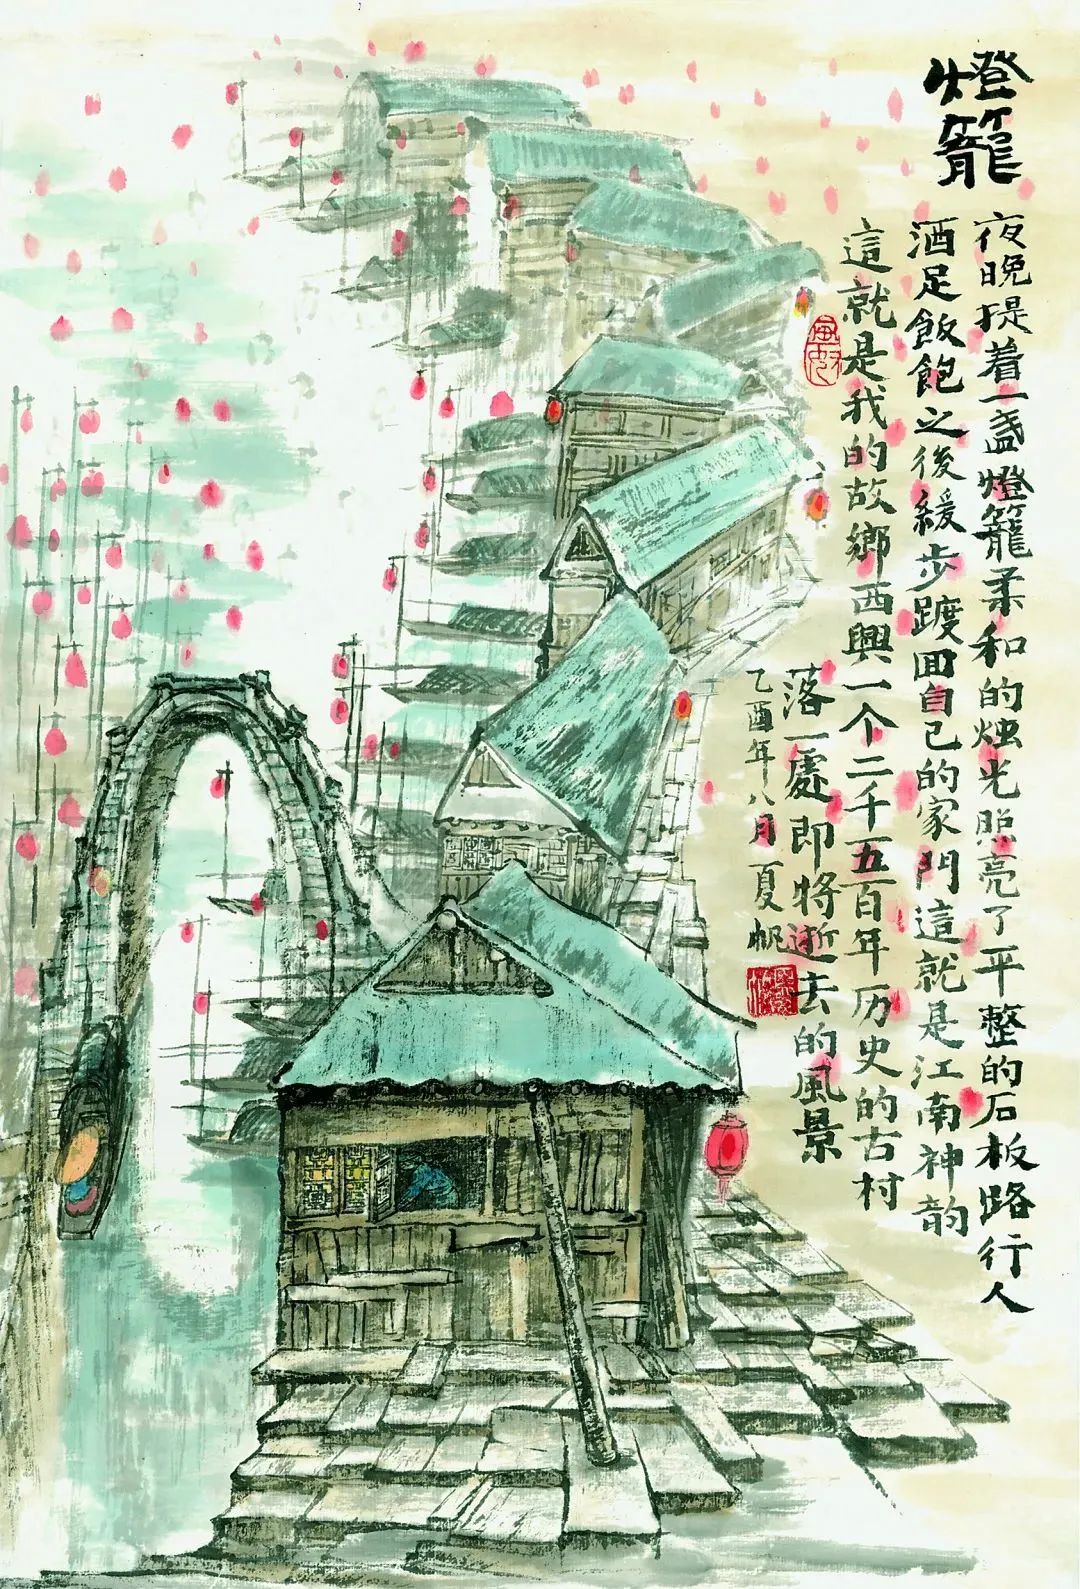 燈籠
夜晚提着一盏燈籠柔和的烛光照亮了平整的石板路行人
酒足飯飽之後緩步踱回自己的家門這就是江南神韵
這就是我的故鄉西興一个二千五百年历史的古村
落一處即將逝去的風景
乙酉年八月夏帆